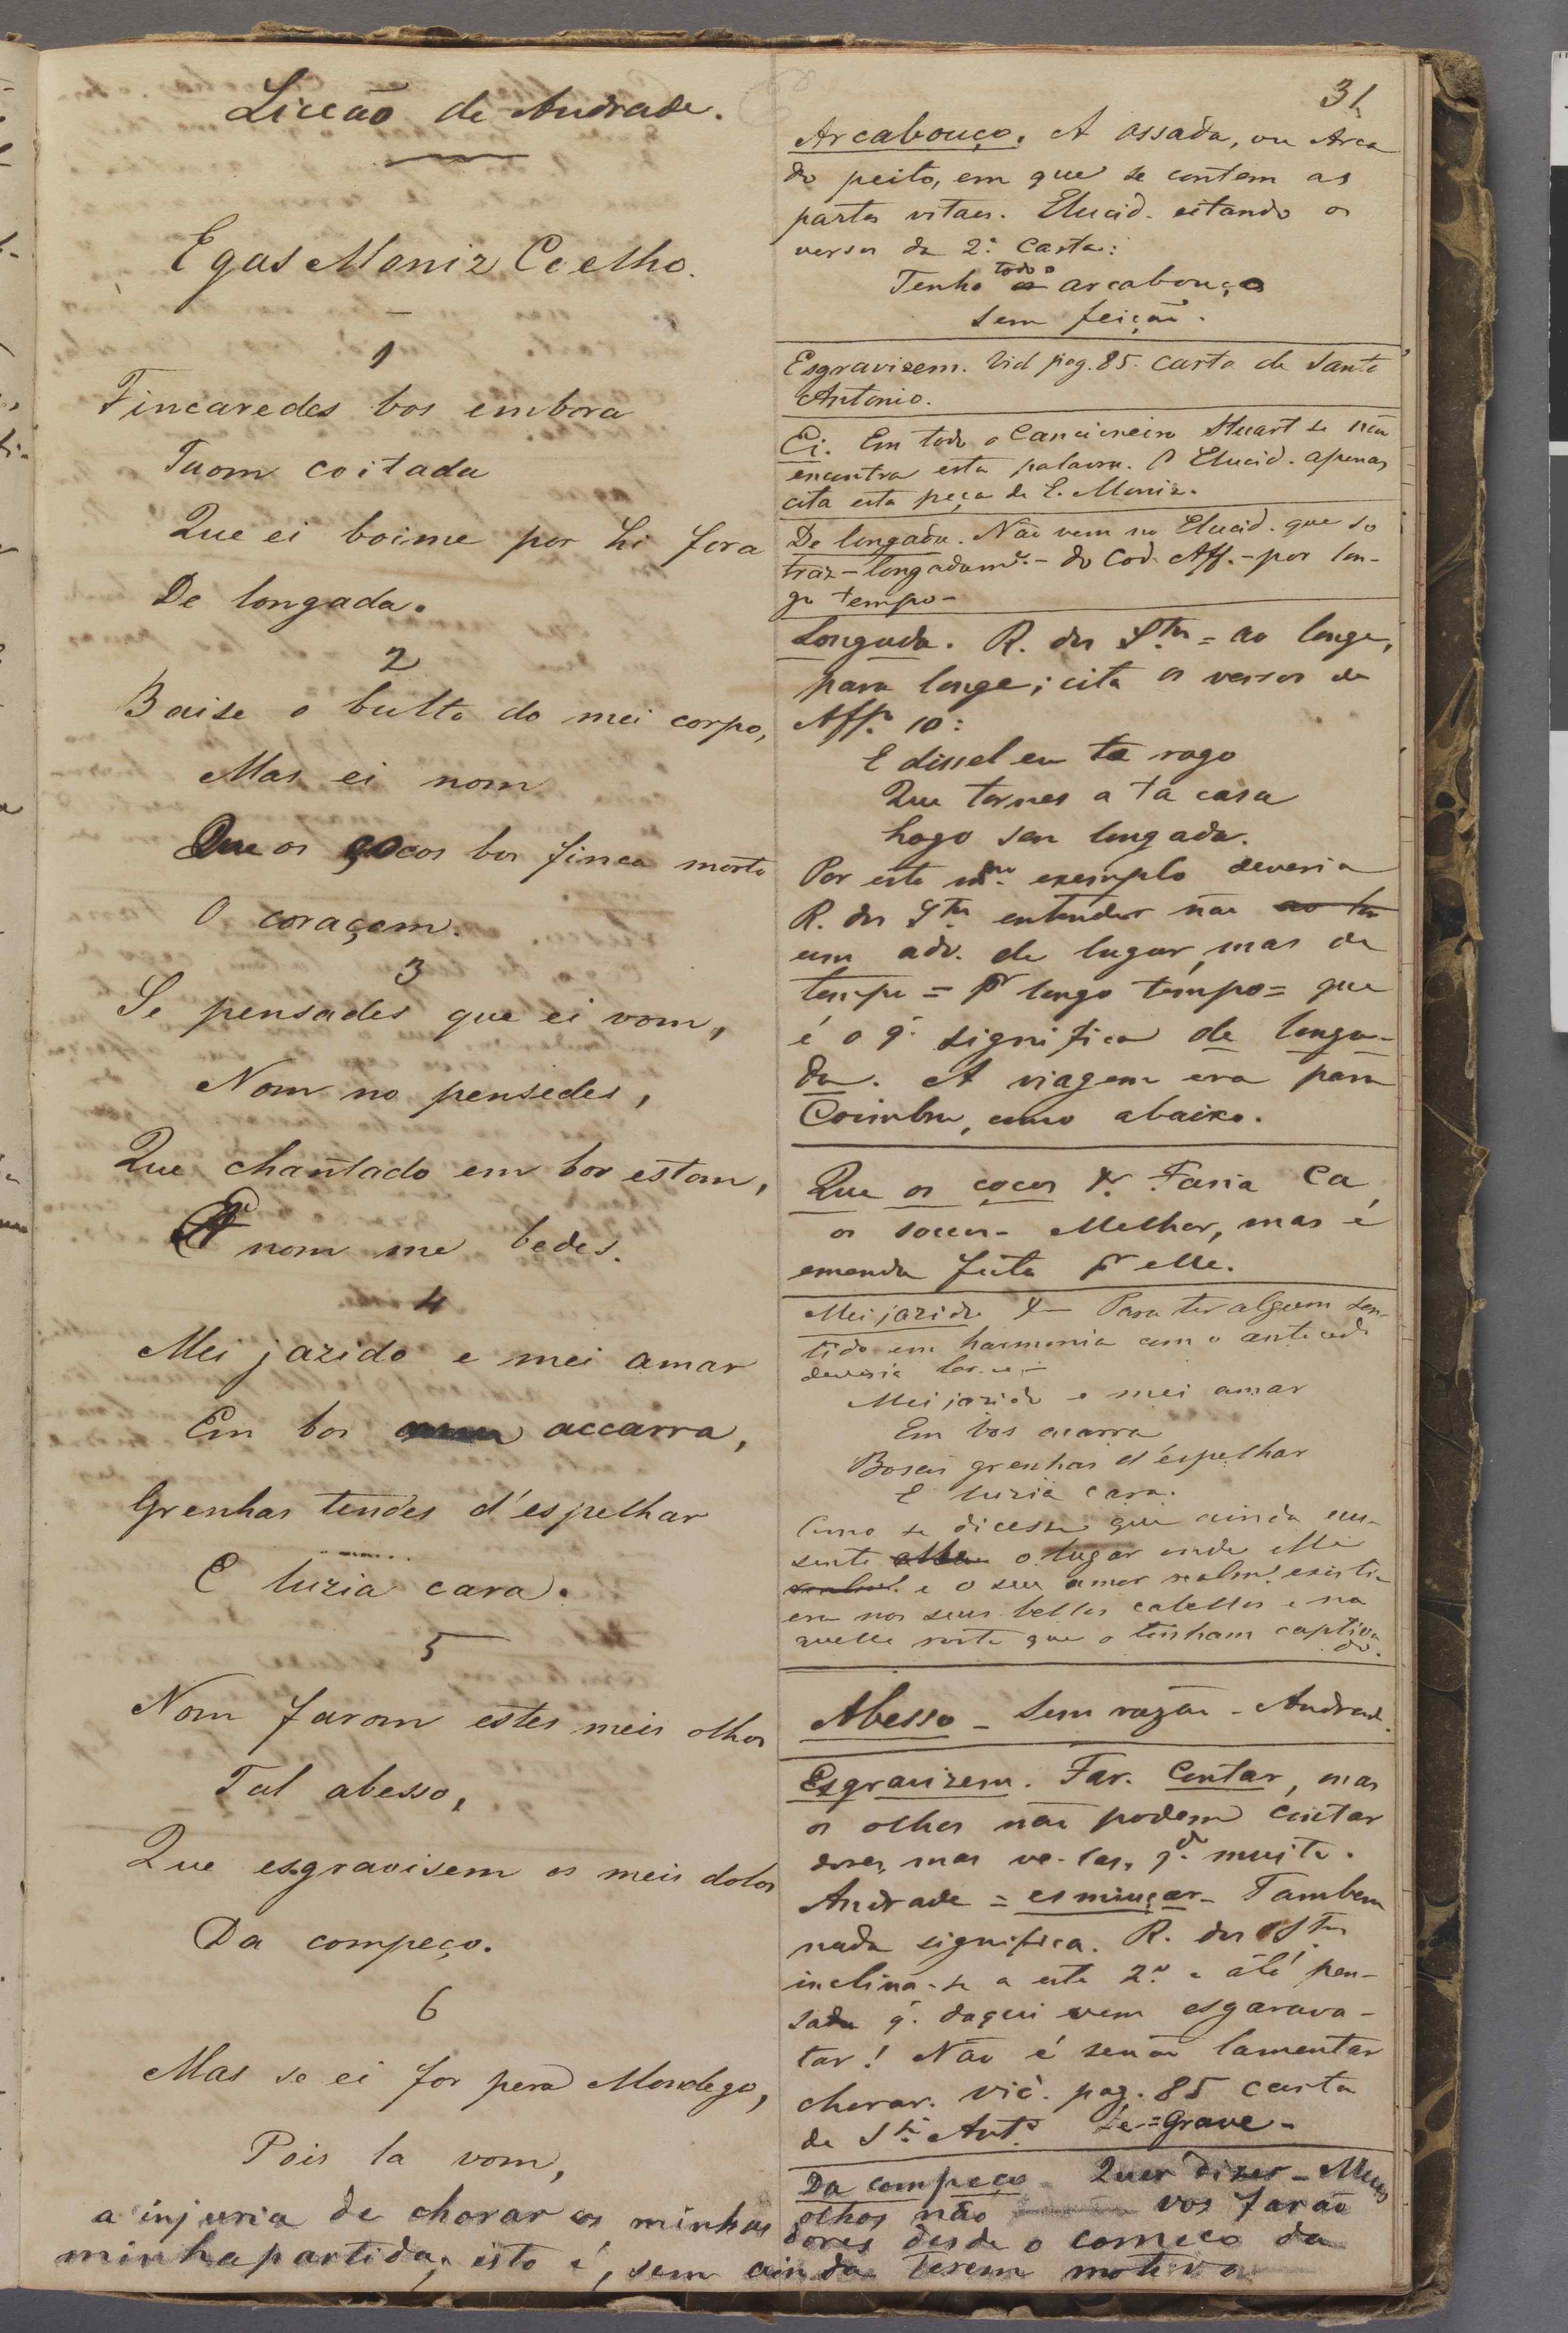 Licção de Andrade.
Egas Moniz Coelho.
1
Fincaredes bos embora
Taom coitada
Que ei boime por hi fora
De longada.
2
Baise o bulto do mei corpo,
Mas ei nom
Que os çocos bos finca morto
O coraçem.
3
Se pensades que ei vom,
Nom no pensedes,
Que chantado em bos estom,
E nom me bedes.
4
Mei jazido e mei amar
Em bos accarra,
Grenhas tendes d'espelhar
E luzia cara.
5
Nom farom estes meis olhos
Tal abesso,
Que esgravisem os meis dolos
Da compeço.
6
Mas se ei for pera Mondego,
Pois la vom,
31
Arcabouço. A ossada, ou Arca
do peito, em que se contem as
partes vitaes. Elucid. citando os
versos da 2.ª Carta:
Tenho todo o arcabouço
Sem feição.
Esgravisem. Vid pag. 85. Carta de Santo
Antonio.
Ei. Em todo o Cancioneiro Stuart se não
encontra esta palavra. O Elucid. apenas
cita esta peça de E. Moniz.
De longada. Não vem no Elucid. que so
traz - longadamte. - do Cod. Aff. - por lon-
go tempo -
Longada. R. dos Stos = ao longe,
para longe; cita os versos de
Aff.º 10:
E dissel eu te rogo
Que tornes a ta casa
Logo sen longada.
Por este mmo. exemplo deveria
R. dos Stos entender não ao lon
um adv. de lugar, mas de
tempo = pr longo tempo = que
é o q. significa de longa-
da. A viagem era para
Coimbra, como abaixo.
Que os çocos &. Faria Ca
os socos - Melhor, mas é
emenda feita pr elle.
Mei jazido &- Para ter algum sen-
tido em harmonia com o antecede
deveria ler-se -
Mei jazido e mei amar
Em bos acarra
Bosas grenhas d'espelhar
E luzia cara.
Como se dicesse que ainda au-
sente o lugar onde elle
e o seu amor realmte. existia
era nos seus bellos cabellos e na
quelle rosto que o tinham captiva
do.
Abesso - Sem razão - Andrade.
Esgravizem. Far. Contar, mas
os olhos não podem contar
dores, mas ve-las, qdo. muito.
Andrade = esmiuçar - Tambem
nada significa. R. dos Stos
inclina-se a este 2.º e até pen-
sa q. daqui vem esgarava-
tar! Não é senão lamentar
chorar. vid. pag. 85 carta
de Sto. Antº. Le = Grave -
Da compeço - Quer dizer - Meus
olhos não vos farão
a injuria de chorar as minhas dores desde o começo da
minha partida, isto é, sem ainda terem motivo